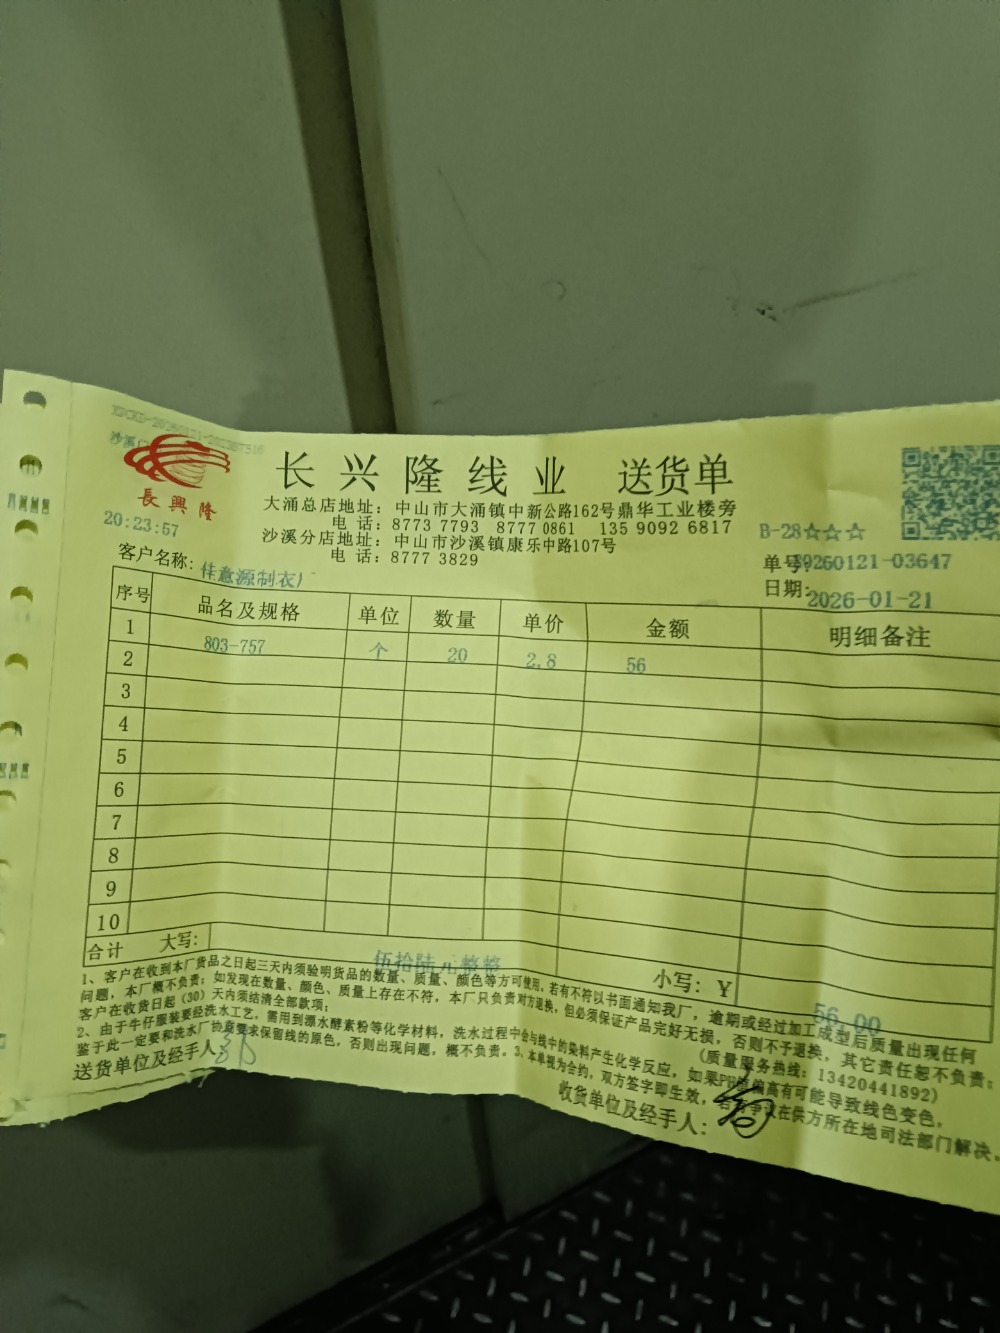 長興隆
20:23:57
长兴隆线业 送货单
大涌总店地址：中山市大涌镇中新公路162号鼎华工业楼旁
电话：8773 7793 8777 0861 135 9092 6817
沙溪分店地址：中山市沙溪镇康乐中路107号
电话：8777 3829
B-28☆☆☆
单号:20260121-03647
日期:2026-01-21
客户名称:佳意源制衣厂
序号 品名及规格 单位 数量 单价 金额 明细备注
1 803-757 个 20 2.8 56
2
3
4
5
6
7
8
9
10
合计 大写: 伍拾陆元整整 小写: ¥ 56.00
1、客户在收到本厂货品之日起三天内须验明货品的数量、质量、颜色等方可使用,若有不符以书面通知我厂，逾期或经过加工成型后质量出现任何
问题，本厂概不负责；如发现在数量、颜色、质量上存在不符，本厂只负责对方退换，但必须保证产品完好无损，否则不予退换，其它责任恕不负责；
客户在收货日起（30）天内须结清全部款项；
(质量服务热线：13420441892)
2、由于牛仔服装要经洗水工艺，需用到漂水酵素粉等化学材料，洗水过程中会与线中的染料产生化学反应，如果PH值偏高有可能导致线色变色，
鉴于此一定要和洗水厂协商要求保留线的原色，否则出现问题，概不负责。3、本单视为合约，双方签字即生效，若有争议在供方所在地司法部门解决。
送货单位及经手人:
收货单位及经手人：